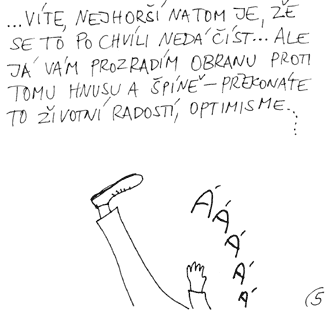 ...VÍTE, NEJHORŠÍ NA TOM JE, ŽE
SE TO PO CHVÍLI NEDÁ ČÍST... ALE
JÁ VÁM PROZRADÍM OBRANU PROTI
TOMU HNUSU A ŠPÍNĚ – PŘEKONÁTE
TO ŽIVOTNÍ RADOSTÍ, OPTIMISME...
Á
Á
Á
Á
Á
5